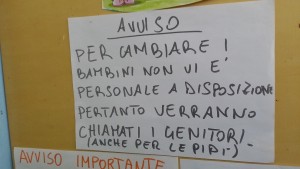 AVVISO
PER CAMBIARE I
BAMBINI NON VI E'
PERSONALE A DISPOSIZIONE
PERTANTO VERRANNO
CHIAMATI I GENITORI.
(ANCHE PER LE PIPI-)
AVVISO IMPORTANTE